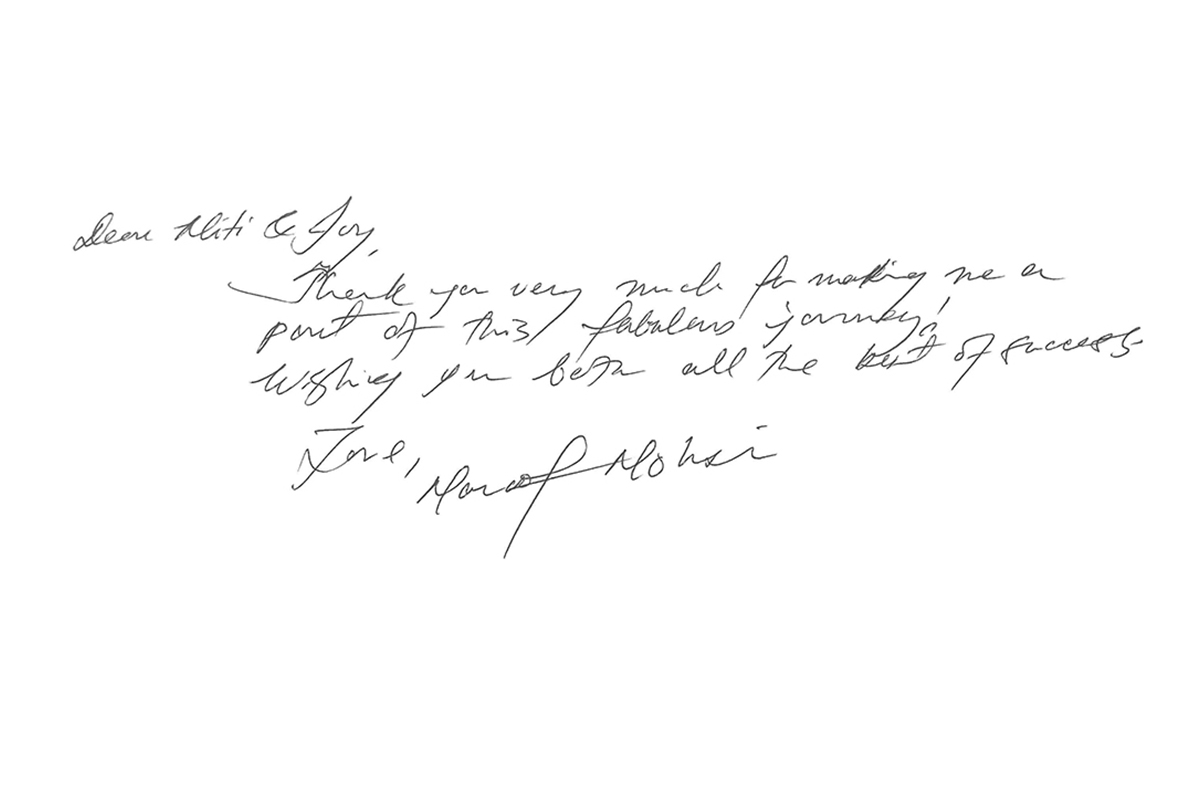 Dear Niti & Joy,
Thank you very much for making me a
part of this fabulous journey!
Wishing you both all the best of success
Love,